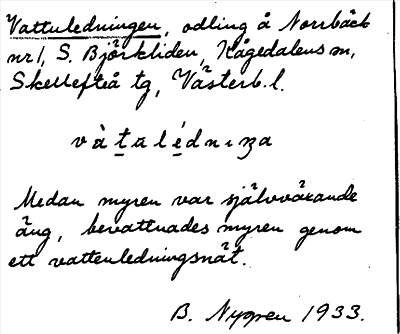 Vattuledningen, odling å Norrbäck
nr 1, S. Björkliden, Kågedalens m,
Skellefteå tg, Västerb. l.
và̀talédnıŋa
Medan myren var självväxande
äng, bevattnades myren genom
ett vattenledningsnät.
B. Nygren 1933.